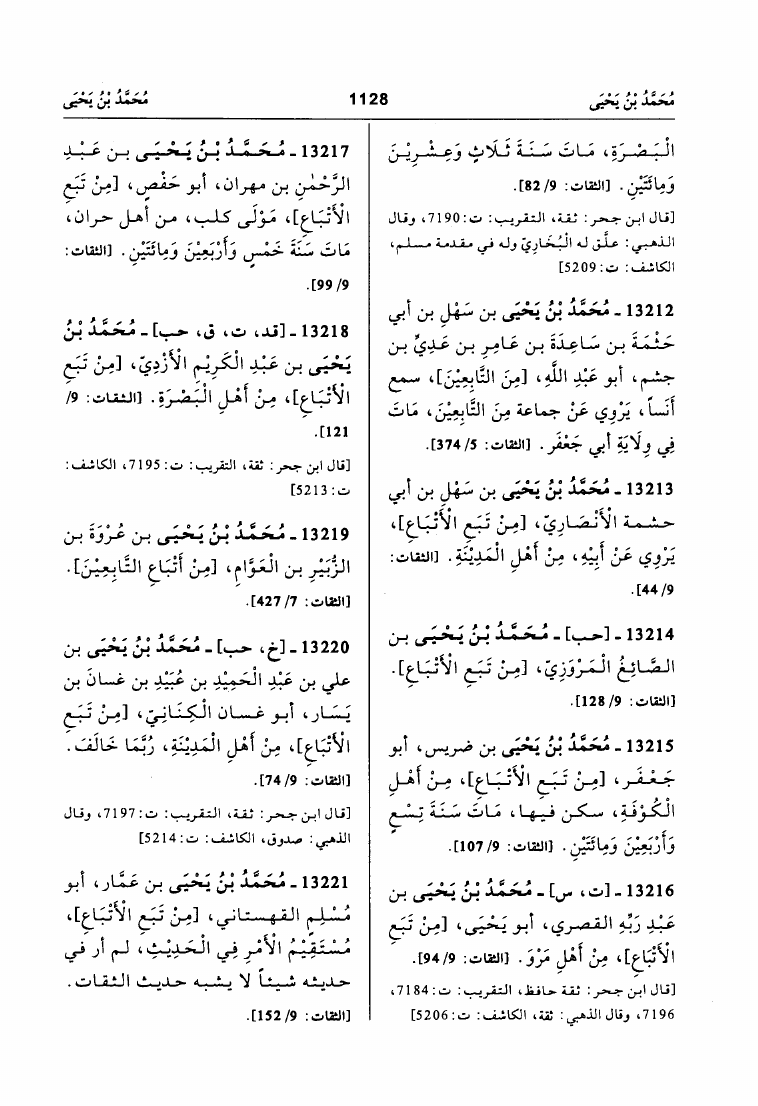 مُحَمَّدُ بْنُ يَحْيَى
1128
مُحَمَّدُ بْنُ يَحْيَى
الْبَصْرَةِ، مَاتَ سَنَةَ ثَلَاثٍ وَعِشْرِيْنَ
وَمِائَتَيْنِ. [الثقات: 9/ 82].
[قال ابن حجر: ثقة، التقريب: ت: 7190، وقال
الذهبي: علَّق له الْبُخَارِيّ وله في مقدمة مسلم،
الكاشف: ت: 5209]
13212 - مُحَمَّدُ بْنُ يَحْيَى بن سَهْلِ بن أبي
حَثْمَةَ بن سَاعِدَةَ بن عَامِرِ بن عَدِيِّ بن
جشم، أبو عَبْدِ اللَّهِ، [مِنَ التَّابِعِيْنَ]، سمع
أَنَساً، يَرْوِي عَنْ جماعة مِنَ التَّابِعِيْنَ، مَاتَ
فِي وِلَايَةِ أبي جَعْفَر. [الثقات: 5/ 374].
13213 - مُحَمَّدُ بْنُ يَحْيَى بن سَهْلِ بن أبي
حثمة الأَنْصَارِيّ، [مِنْ تَبَعِ الأَتْبَاعِ]،
يَرْوِي عَنْ أَبِيْهِ، مِنْ أَهْلِ الْمَدِيْنَةِ. [الثقات:
9/ 44].
13214 - [حب] - مُحَمَّدُ بْنُ يَحْيَى بن
الصَّائِغُ الْمَرْوَزِيّ، [مِنْ تَبَعِ الأَتْبَاعِ].
[الثقات: 9/ 128].
13215 - مُحَمَّدُ بْنُ يَحْيَى بن ضريس، أبو
جَعْفَر، [مِنْ تَبَعِ الأَتْبَاعِ]، مِنْ أَهْلِ
الْكُوْفَةِ، سكن فيها، مَاتَ سَنَةَ تِسْعٍ
وَأَرْبَعِيْنَ وَمِائَتَيْنِ. [الثقات: 9/ 107].
13216 - [ت، س] - مُحَمَّدُ بْنُ يَحْيَى بن
عَبْدِ رَبِّهِ القصري، أبو يَحْيَى، [مِنْ تَبَعِ
الأَتْبَاعِ]، مِنْ أَهْلِ مَرْوَ. [الثقات: 9/ 94].
[قال ابن حجر: ثقة حافظ، التقريب: ت: 7184،
7196، وقال الذهبي: ثقة، الكاشف: ت: 5206]
13217 - مُحَمَّدُ بْنُ يَحْيَى بن عَبْدِ
الرَّحْمَنِ بن مهران، أبو حَفْص، [مِنْ تَبَعِ
الأَتْبَاعِ]، مَوْلَى كلب، من أهل حران،
مَاتَ سَنَةَ خَمْسٍ وَأَرْبَعِيْنَ وَمِائَتَيْنِ. [الثقات:
9/ 99].
13218 - [قد، ت، ق، حب] - مُحَمَّدُ بْنُ
يَحْيَى بن عَبْدِ الْكَرِيْمِ الأَزْدِيّ، [مِنْ تَبَعِ
الأَتْبَاعِ]، مِنْ أَهْلِ الْبَصْرَةِ. [الثقات: 9/
121].
[قال ابن حجر: ثقة، التقريب: ت: 7195، الكاشف:
ت: 5213]
13219 - مُحَمَّدُ بْنُ يَحْيَى بن عُرْوَةَ بن
الزُّبَيْرِ بن الْعَوَّامِ، [مِنْ أَتْبَاعِ التَّابِعِيْنَ].
[الثقات: 7/ 427].
13220 - [خ، حب] - مُحَمَّدُ بْنُ يَحْيَى بن
علي بن عَبْدِ الْحَمِيْدِ بن عُبَيْدِ بن غسان بن
يَسَار، أبو غسان الْكِنَانِيّ، [مِنْ تَبَعِ
الأَتْبَاعِ]، مِنْ أَهْلِ الْمَدِيْنَةِ، رُبَّمَا خَالَفَ.
[الثقات: 9/ 74].
[قال ابن حجر: ثقة، التقريب: ت: 7197، وقال
الذهبي: صدوق، الكاشف: ت: 5214]
13221 - مُحَمَّدُ بْنُ يَحْيَى بن عَمَّار، أبو
مُسْلِمِ القهستاني، [مِنْ تَبَعِ الأَتْبَاعِ]،
مُسْتَقِيْمُ الأَمْرِ فِي الْحَدِيْثِ، لم أر في
حديثه شيئاً لا يشبه حديث الثقات.
[الثقات: 9/ 152].